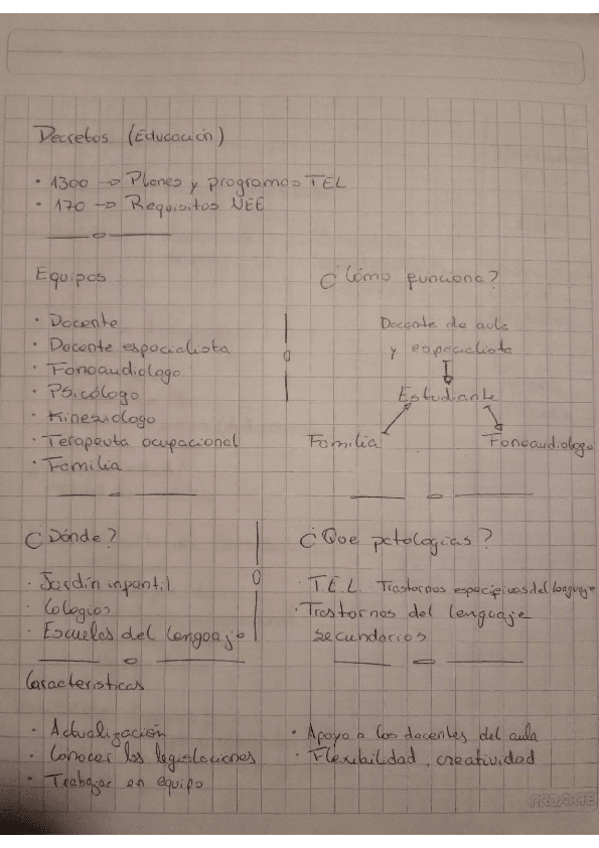 Decretos (Educación)
• 1300 → Planes y programas TEL
• 170 → Requisitos NEE
Equipos
• Docente
• Docente especialista
• Fonoaudiologo
• Psicólogo
• Kinesiologo
• Terapeuta ocupacional
• Familia
¿Cómo funciona?
Docente de aula
y especialista
Estudiante
Familia
Fonoaudiologo
¿Dónde?
• Jardín infantil
• Colegios
• Escuelas del lenguaje
¿Que patologias?
• T.E.L. Trastornos especificos del lenguaje
• Trastornos del lenguaje
secundarios
Caracteristicas
• Actualización
• Conocer las legislaciones
• Trabajar en equipo
• Apoyo a los docentes del aula
• Flexibilidad, creatividad
PROARTE